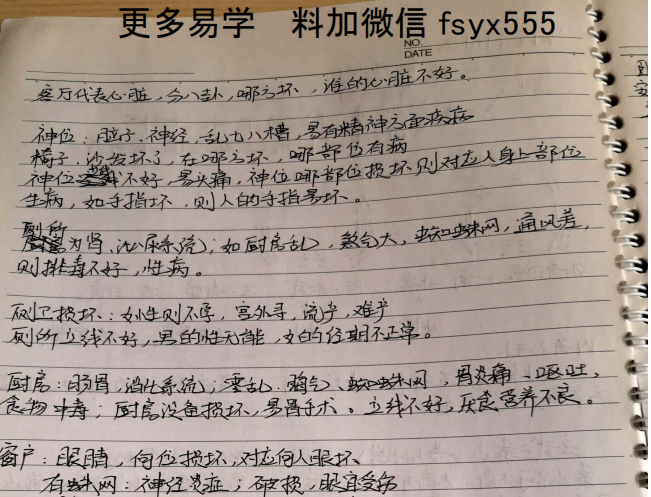 更多易学 料加微信 fsyx555
NO.
DATE
客厅代表心脏,分八卦,哪方坏,谁的心脏不好。
神位:脑子、神经,乱七八糟,易有精神方面疾病
椅子、沙发坏了,在哪方坏,哪部位有病
神位不好,易头痛,神位哪部位损坏则对应人身上部位
生病,如手指坏,则人的手指易坏。
厕所
为肾,泌尿系统;如厨房乱,煞气大,蜘蛛网,通风差,
则排毒不好,性病。
厕卫损坏:女性则不孕,宫外孕,流产,难产
厕所立线不好,男的性无能,女的经期不正常。
厨房:肠胃、消化系统;零乱、霸气、蜘蛛网,胃炎痛、呕吐、
食物中毒;厨房设备损坏,易胃手术。立线不好,厌食营养不良。
窗户:眼睛,何位损坏,对应何人眼坏
有蛛网:神经炎症;破损,眼宫受伤